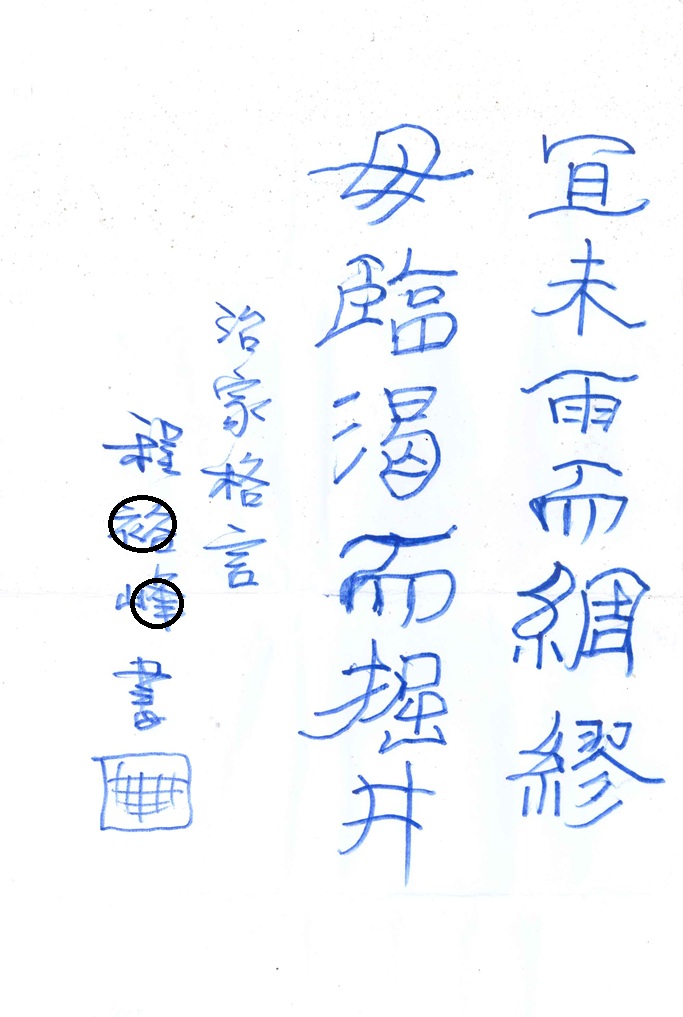 宜未雨而綢繆
毋臨渴而掘井
治家格言
程書